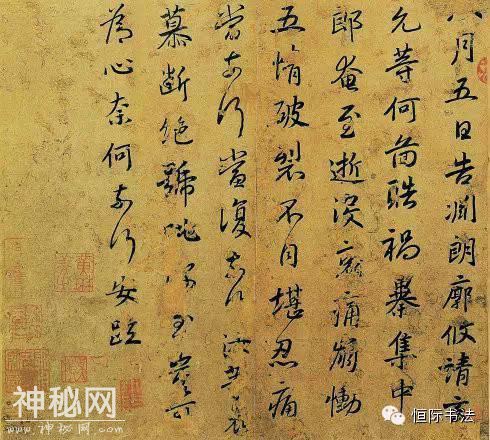 八月五日告淵朗廓攸靖玄
允等何圖酷禍暴集中
郎奄至逝没哀痛崩慟
五情破裂不自堪忍痛
當奈何當復奈何汝等哀
慕斷絶號咷深至豈可
為心奈何奈何安疏
神秘网
www.神秘网.com
恒际书法